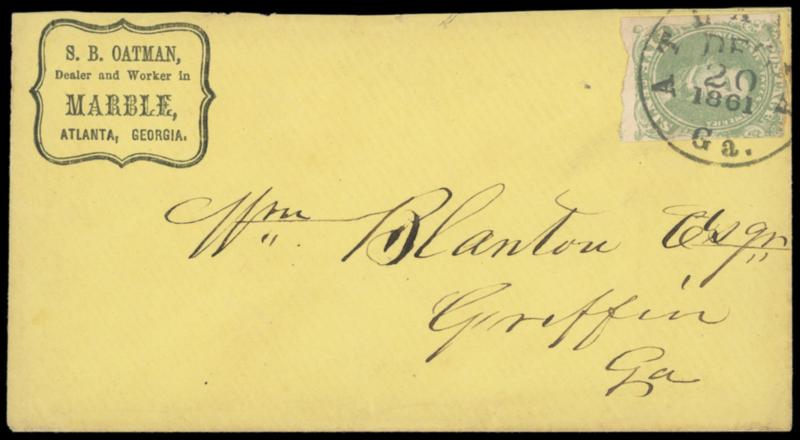 S. B. OATMAN,
Dealer and Worker in
MARBLE,
ATLANTA, GEORGIA.
ATLA
DEC
20
1861
Ga.
AMERICA
Wm. Blanton Esqr
Griffin
Ga